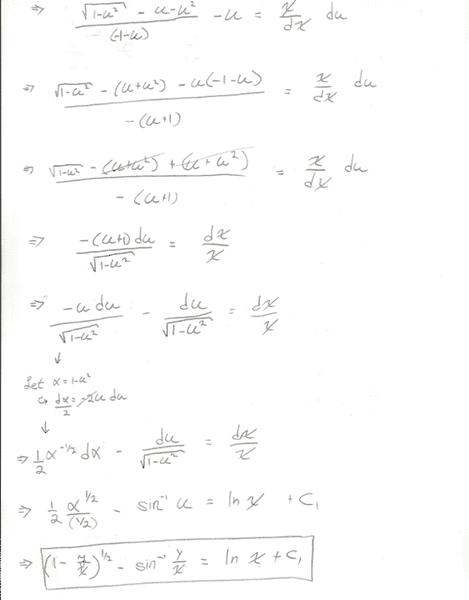 ⇒ (√(1-u²) - u-u²)/(-(1-u)) - u = x/dx du
⇒ (√(1-u²) - (u+u²) - u(-1-u))/(-(u+1)) = x/dx du
⇒ (√(1-u²) - (u+u²) + (u+u²))/(-(u+1)) = x/dx du
⇒ -(u+1)du/√(1-u²) = dx/x
⇒ -u du/√(1-u²) - du/√(1-u²) = dx/x
↓
Let α = 1-u²
↳ dα/2 = -2u du
↓
⇒ 1/2 α^(-1/2) dα - du/√(1-u²) = dx/x
⇒ 1/2 α^(1/2)/(1/2) - sin⁻¹ u = ln x + C₁
⇒ (1 - y/x)^(1/2) - sin⁻¹ y/x = ln x + C₁